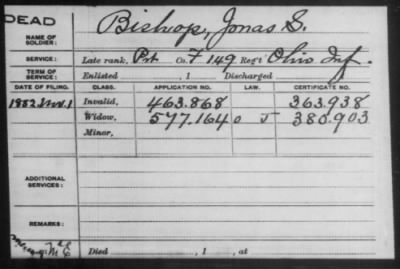 DEAD
NAME OF SOLDIER: Bishop, Jonas S.
SERVICE: Late rank, Pvt Co. F 149 Reg't Ohio Inf.
TERM OF SERVICE: Enlisted , 1 Discharged
DATE OF FILING. CLASS. APPLICATION NO. LAW. CERTIFICATE NO.
1882, 1 Invalid, 463.868 363.938
Widow, 577.164 O J 380.903
Minor,
ADDITIONAL SERVICES:
REMARKS:
Died , 1 , at